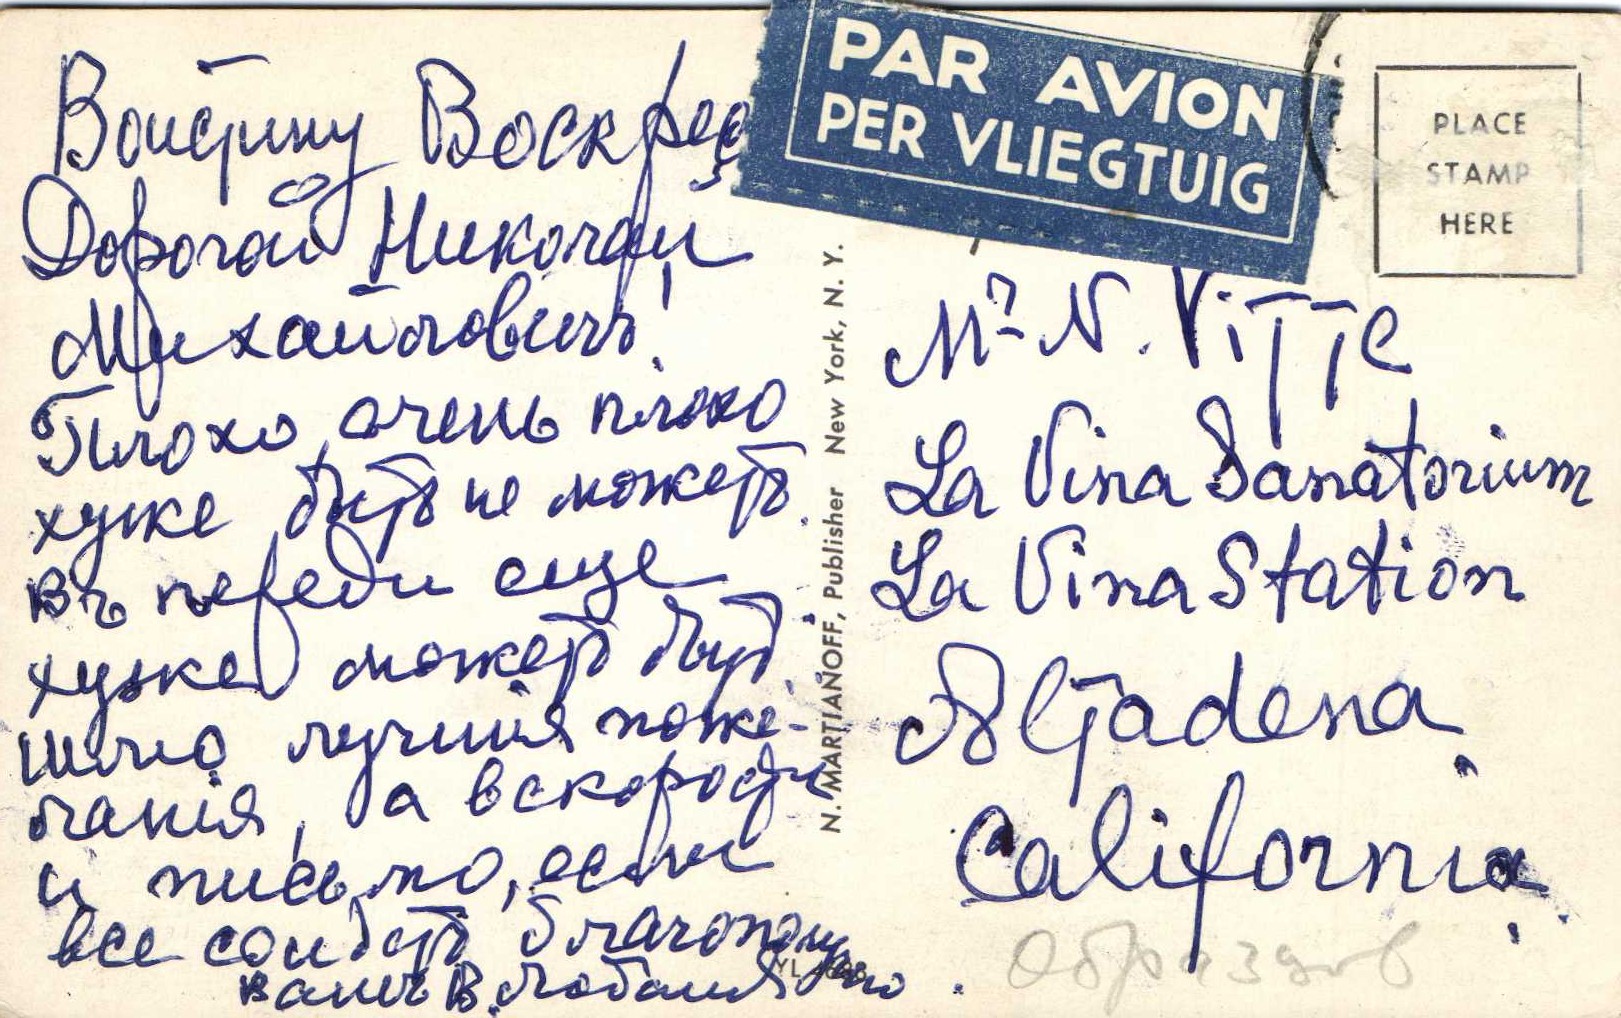 Воистину Воскрес
Дорогой Николай
Михайлович!
Плохо, очень плохо
хуже быть не можетъ.
въ переди еще
хуже можетъ быть.
шлю лучшія поже-
ланія, а вскорости
и письмо, если
все сойдетъ благополучно.
вашъ В.
PAR AVION
PER VLIEGTUIG
PLACE
STAMP
HERE
N. MARTIANOFF, Publisher New York, N. Y.
Mr N. Vitte
La Vina Sanatorium
La Vina Station
Altadena
California
Образцов